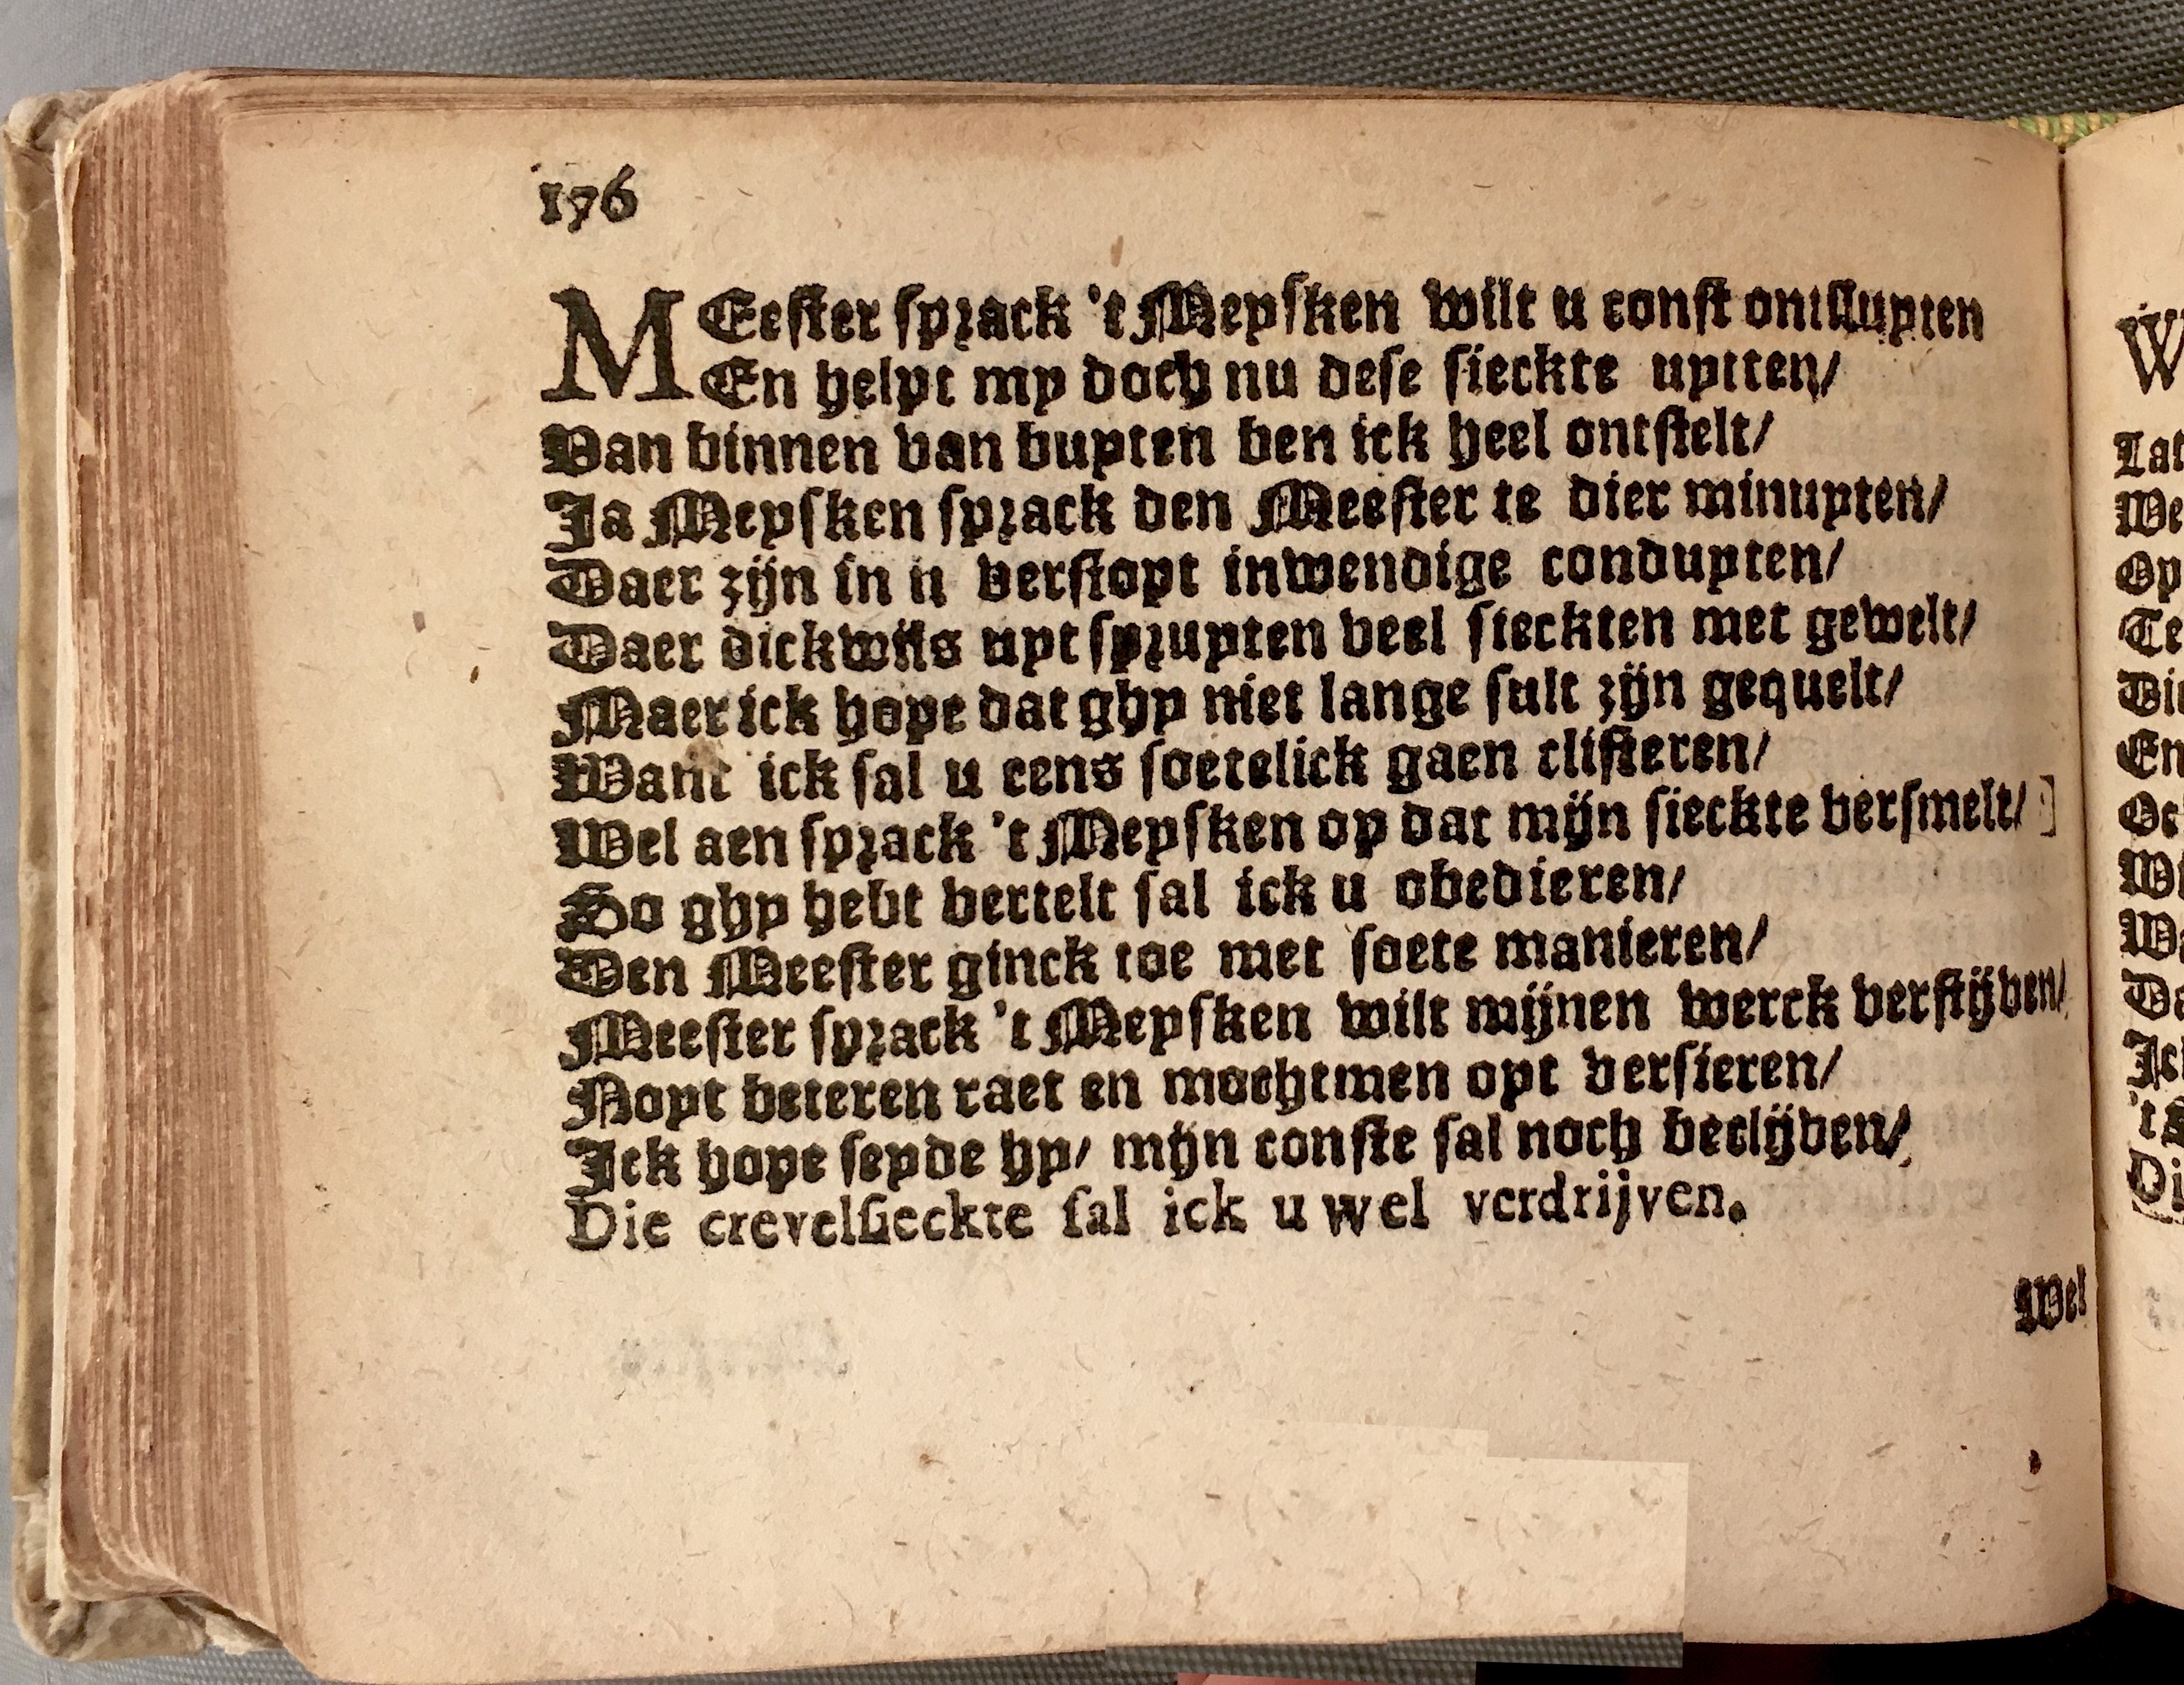 176
MEester sprack 't Meysken wilt u const ontsluyten
En helpt my doch nu dese sieckte uytten/
Van binnen van buyten ben ick heel ontstelt/
Ja Meysken sprack den Meester te dier minuyten/
Daer zijn in u verstopt inwendige conduyten/
Daer dickwils uyt spruyten veel sieckten met gewelt/
Maer ick hope dat ghy niet lange sult zijn gequelt/
Want ick sal u eens soetelick gaen clisteren/
Wel aen sprack 't Meysken op dat mijn sieckte versmelt/]
So ghy hebt vertelt sal ick u obedieren/
Den Meester ginck toe met soete manieren/
Meester sprack 't Meysken wilt mijnen werck verstijven/
Noyt beteren raet en mochtmen oyt versieren/
Ick hope seyde hy/ mijn conste sal noch beclijven/
Die crevelsieckte sal ick u wel verdrijven.
Wel
W
Lat
We
Op
Te
Die
En
Oc
Wi
Wa
Da
Ick
't S
Di